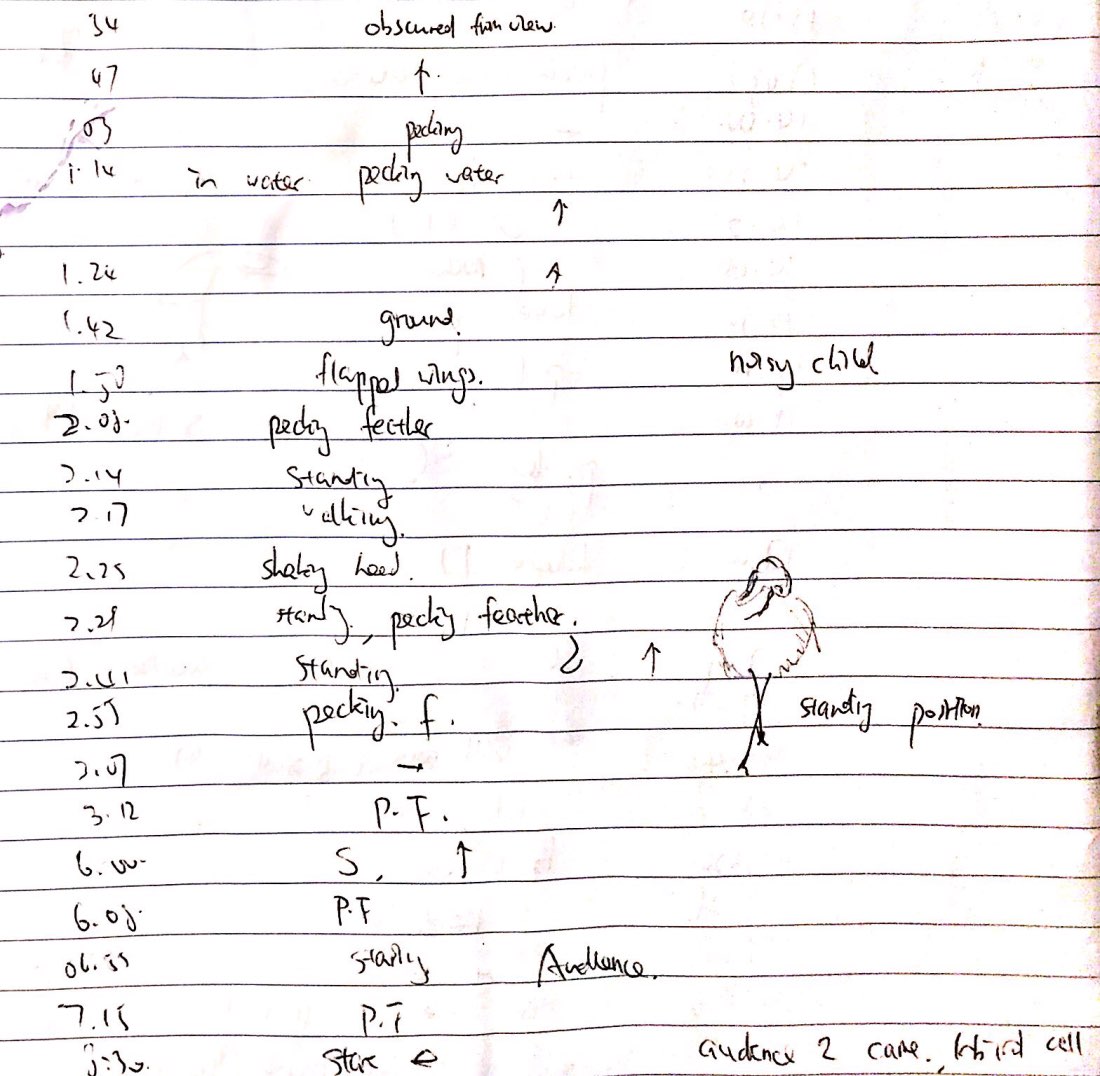 34 obscured from view.
47 ↑.
1.03 pecking
1.14 in water. pecking water
↑
1.24 ↑
1.42 ground.
1.50 flapped wings. noisy child
2.05. pecking feather
2.14 standing
2.17 walking.
2.25 shaking head.
2.28 standing, pecking feather.
2.41 standing. ↑
2.55 pecking. f. standing position.
3.07 →
3.12 P.F.
6.00. S, ↑
6.05. P.F
06.55 standing Audience.
7.15 P.F
stare ← audience 2 came, bird call